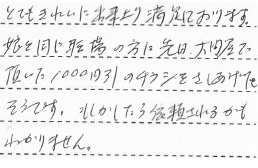 とてもきれいに出来上り満足しております。
娘と同じ職場の方に先日、太閤屋で
頂いた1000円引のチラシをさしあげた
そうです。もしかしたら依頼されるかも
わかりません。